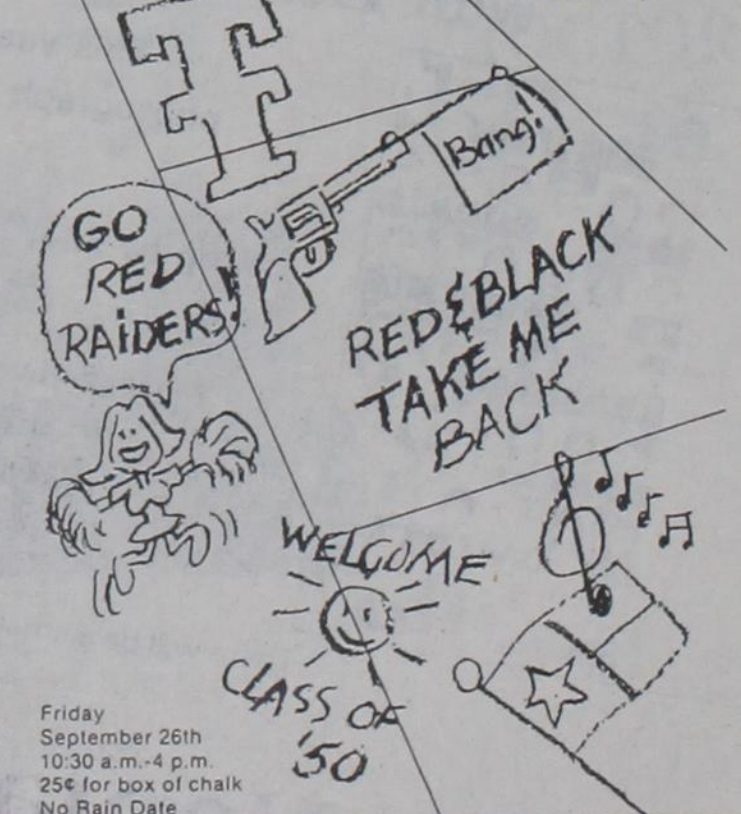 T
Bang!
GO
RED
RAIDERS!
RED & BLACK
TAKE ME
BACK
WELCOME
CLASS OF
'50
Friday
September 26th
10:30 a.m.-4 p.m.
25¢ for box of chalk
No Rain Date